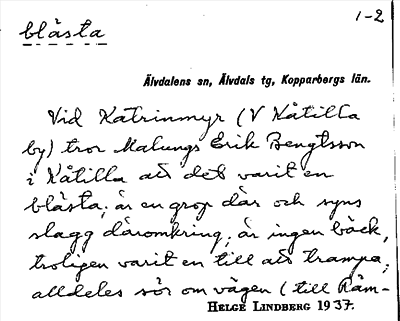 1-2
blåsta
Älvdalens sn, Älvdals tg, Kopparbergs län.
Vid Katrinmyr (V Kåtilla
by) tror Malungs Erik Bengtsson
i Kåtilla att det varit en
blåsta; är en grop där och syns
slagg däromkring; är ingen bäck,
troligen varit en till att trampa;
alldeles sör om vägen (till Räm-
HELGE LINDBERG 1937.